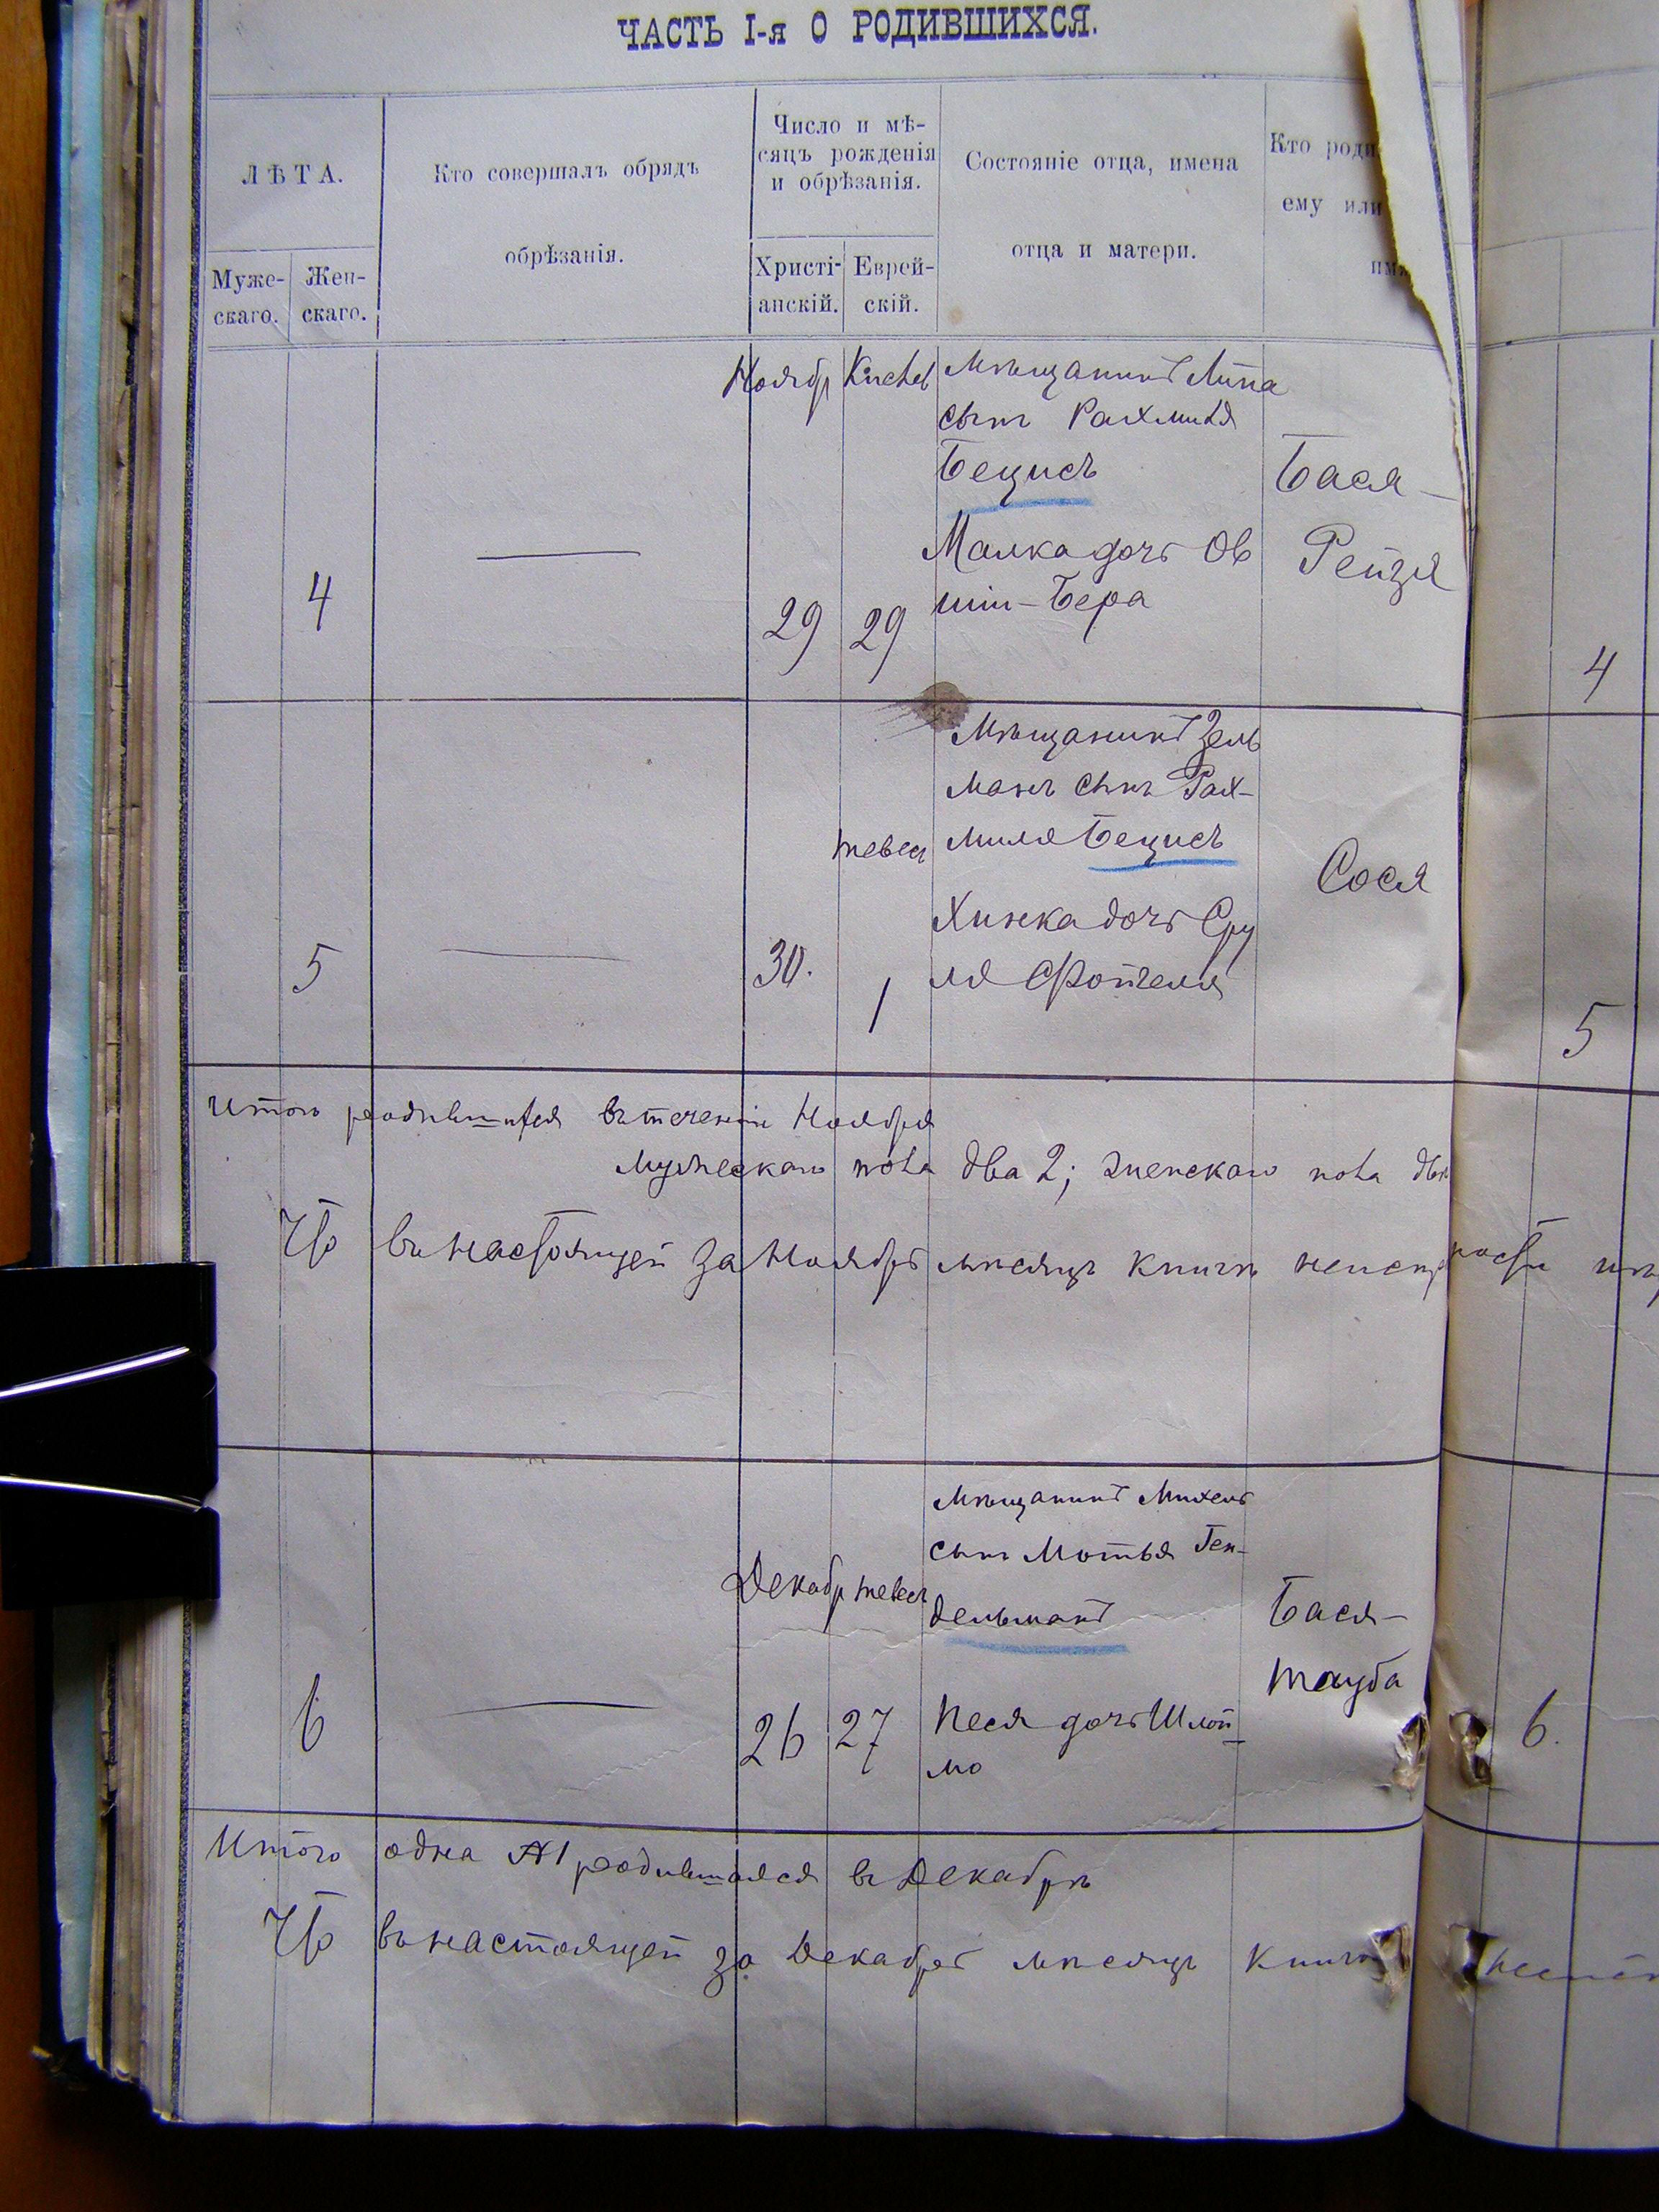 ЧАСТЬ I-я О РОДИВШИХСЯ.
ЛѢТА.
Муже-
скаго.
Жен-
скаго.
Кто совершалъ обрядъ
обрѣзанія.
Число и мѣ-
сяцъ рожденія
и обрѣзанія.
Христі-
анскій.
Еврей-
скій.
Состояніе отца, имена
отца и матери.
Кто роди
ему или
имя
4
Ноябр
29
Кислев
29
Мѣщанинъ Липа
сынъ Рахмиля
Бецисъ
Малка дочь Ов
шія-Бера
Бася-
Рейзя
4
5
30.
тевес
1
Мѣщанинъ Зель
манъ сынъ Рах-
миля Бецисъ
Хинка дочь Сру
ля
Сося
5
Итого родившихся въ теченіи Ноября
мужескаго пола два 2; женскаго пола двѣ
Что въ настоящей за Ноябрь мѣсяцъ книгѣ
6
Декабр
26
тевес
27
Мѣщанинъ Михель
сынъ Мотья Ген-
дельманъ
Песя дочь Шлой-
мо
Бася-
тауба
6.
Итого одна №1 родившаяся въ Декабрѣ
Что въ настоящей за Декабрь мѣсяцъ книгѣ